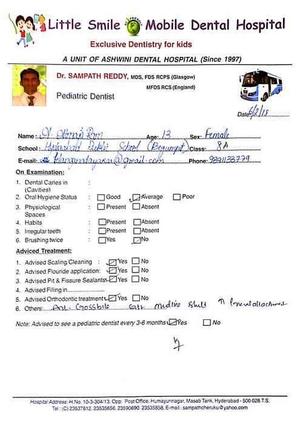 Little Smile Mobile Dental Hospital
Exclusive Dentistry for kids
A UNIT OF ASHWINI DENTAL HOSPITAL (Since 1997)
Dr. SAMPATH REDDY, MDS, FDS RCPS (Glasgow)
MFDS RCS (England)
Pediatric Dentist
Date:
Name: Age: 13 Sex: Female
School: Public School (Begumpet) Class: 8A
E-mail: @gmail.com Phone:
On Examination:
1. Dental Caries in (Cavities) :
2. Oral Hygiene Status : Good Average Poor
3. Physiological Spaces : Present Absent
4. Habits : Present Absent
5. Irregular teeth : Present Absent
6. Brushing twice : Yes No
Adviced Treatment:
1. Advised Scaling Cleaning : Yes No
2. Advised Flouride application: Yes No
3. Advised Pit & Fissure Sealants: Yes No
4. Advised Filling in
5. Advised Orthodontic treatment : Yes No
6. Others: Ant. Crossbite with midline shift
Note: Advised to see a pediatric dentist every 3-6 months Yes No
Hospital Address: H.No. 10-3-304/13, Opp. Post Office, Humayunnagar, Masab Tank, Hyderabad - 500 028 T.S.
Tel: (C) 23537812, 23535656, 23590690, 23535858, E-mail: sampathcheruku@yahoo.com